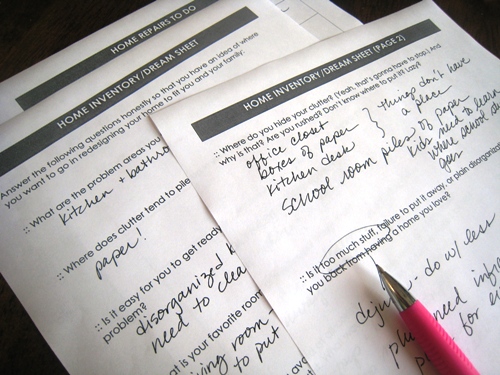 HOME REPAIRS TO DO
HOME INVENTORY/DREAM SHEET
Answer the following questions honestly so that you have an idea of where
you want to go in redesigning your home to fit you and your family:
:: What are the problem areas you
kitchen + bathro
:: Where does clutter tend to pile
paper!
:: Is it easy for you to get ready
problem?
disorganized
need to clea
at is your favorite room
living room -
to put
HOME INVENTORY/DREAM SHEET (PAGE 2)
:: Where do you hide your clutter? (Yeah, that's gonna have to stop.) And
why is that? Are you rushed? Don't know where to put it? Lazy?
office closet
boxes of paper
kitchen desk
things don't have
a place
school room piles of paper
kids need to learn
where school
goes
:: Is it too much stuff, failure to put it away, or plain disorganiz
you back from having a home you love?
dejunk - do w/ less
need info
for